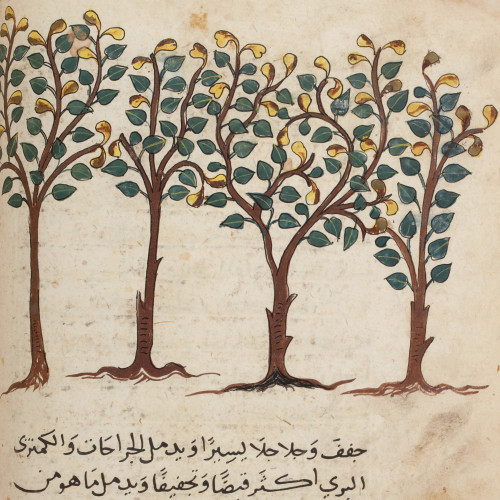 جفف وجلا جلا يسيرا ويدمل الجراحات والكمثرى
البري اكثر قبضا وتجفيفا ويدمل ما هو من